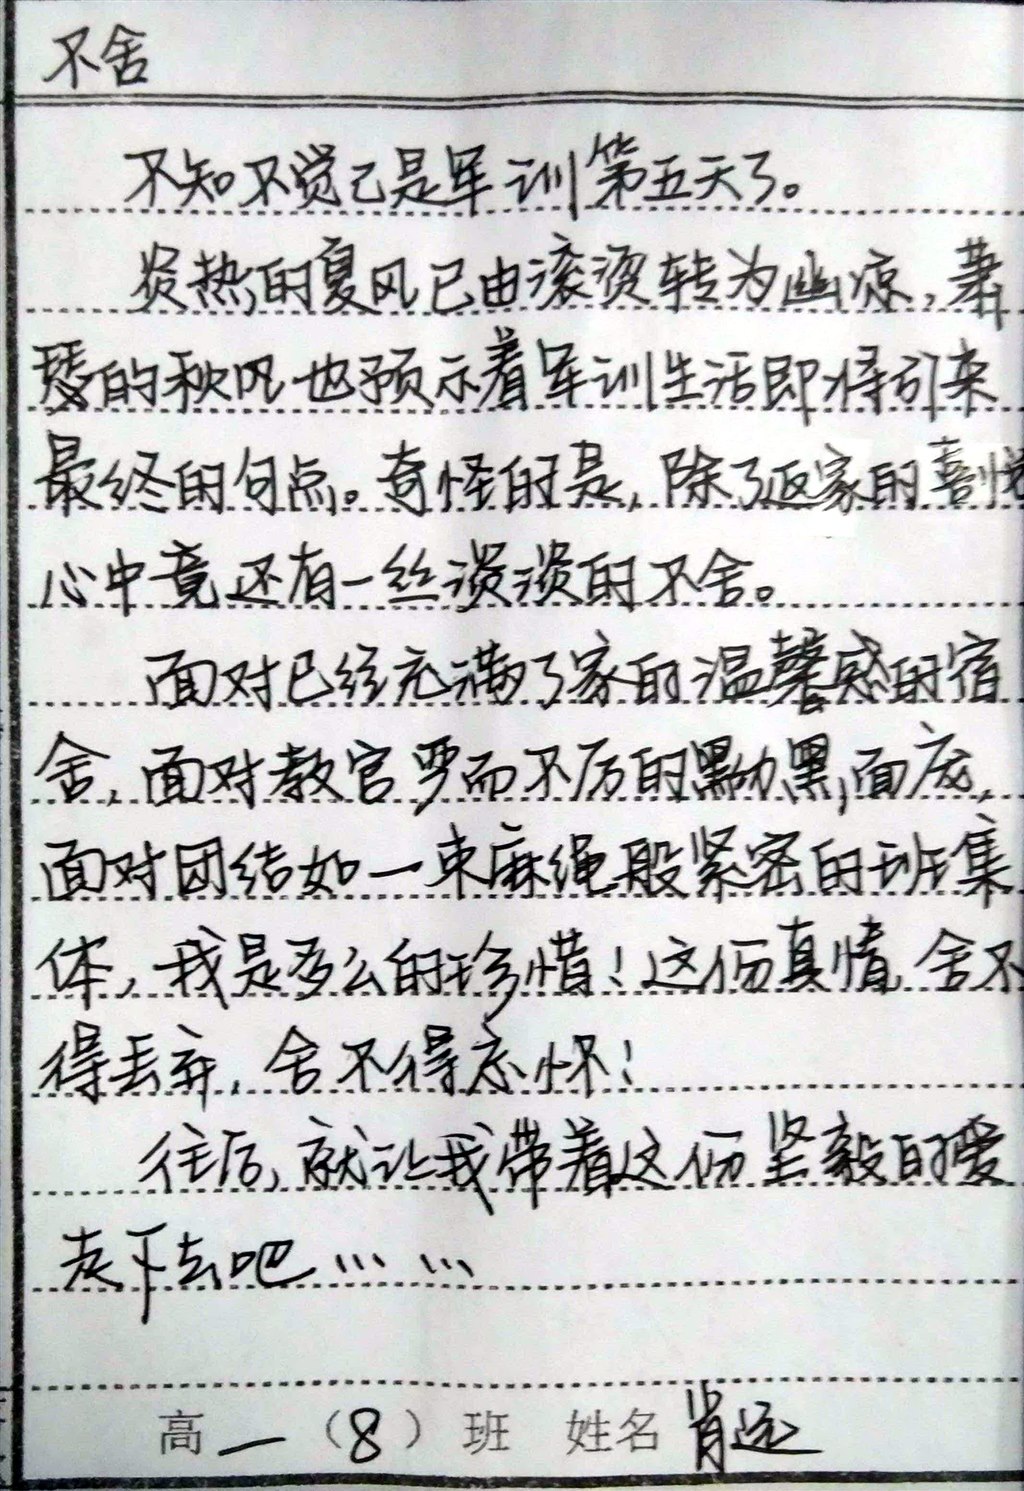 不舍
不知不觉已是军训第五天了。
炎热的夏风已由滚烫转为幽凉,萧
瑟的秋风也预示着军训生活即将引来
最终的句点。奇怪的是,除了返家的喜悦
心中竟还有一丝淡淡的不舍。
面对已经充满了家的温馨感的宿
舍,面对教官严而不厉的黝黑面庞,
面对团结如一束麻绳般紧密的班集
体,我是多么的珍惜!这份真情,舍不
得丢弃,舍不得忘怀!
往后,就让我带着这份坚毅的爱
走下去吧……
高一(8)班 姓名肖远